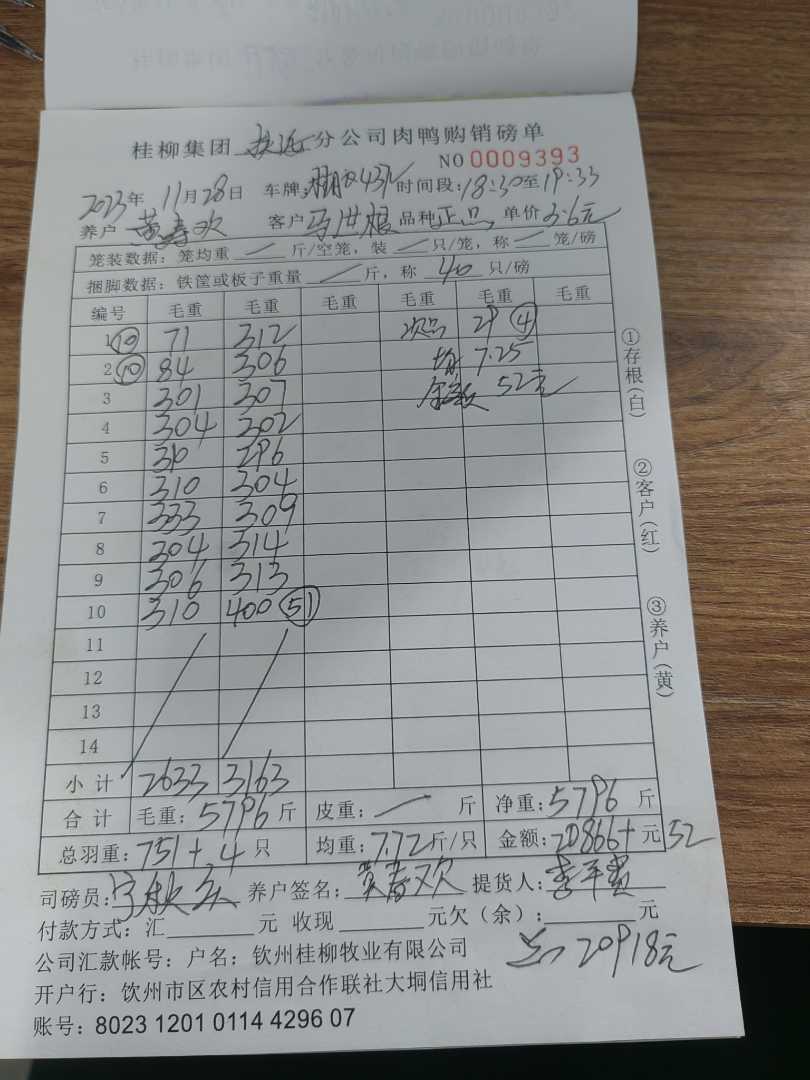 桂柳集团 分公司肉鸭购销磅单
NO 0009393
2023年 11月28日 车牌: 时间段:18:30至19:33
养户 黄春欢 客户 马世根 品种正品 单价3.6元
笼装数据：笼均重 — 斤/空笼，装 — 只/笼，称 — 笼/磅
捆脚数据：铁筐或板子重量 — 斤，称 40 只/磅
编号 毛重 毛重 毛重 毛重 毛重 毛重
1 ⑩ 71 312 次品 29 ④
2 ⑩ 84 306 均 7.25
3 301 307 金额 52元
4 304 302
5 310 296
6 310 304
7 333 309
8 304 314
9 306 313
10 310 400 (51)
11
12
13
14
小计 2633 3163
合计 毛重：5796斤 皮重： — 斤 净重：5796 斤
总羽重：751+4只 均重：7.72斤/只 金额：20866+元52
司磅员： 养户签名：黄春欢 提货人：
付款方式：汇 元 收现 元欠（余）： 元
20918元
公司汇款帐号：户名：钦州桂柳牧业有限公司
开户行：钦州市区农村信用合作联社大垌信用社
账号：8023 1201 0114 4296 07
①存根(白)
②客户(红)
③养户(黄)